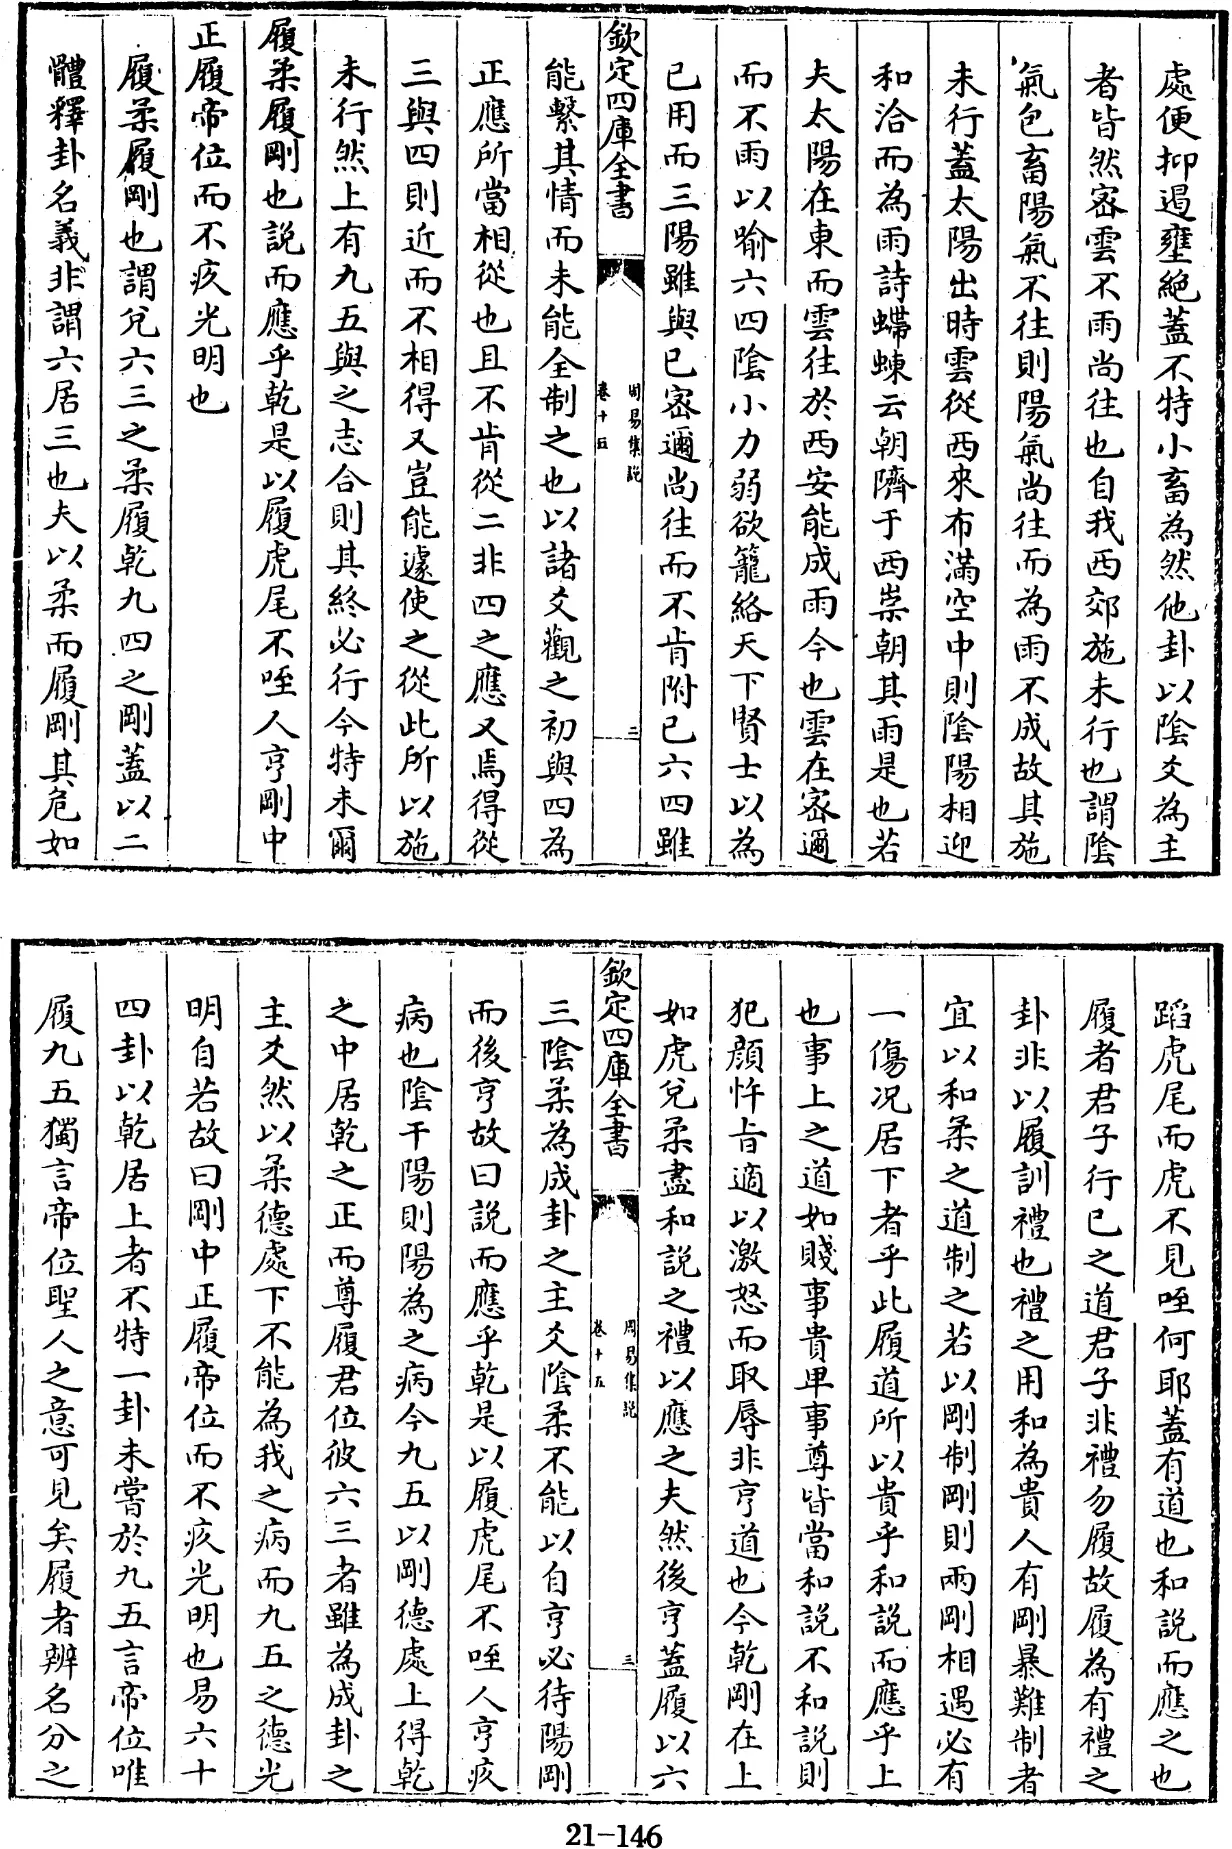 處便抑遏壅絶蓋不特小畜為然他卦以隂爻為主
者皆然密雲不雨尚往也自我西郊施未行也謂隂
氣包畜陽氣不往則陽氣尚往而為雨不成故其施
未行蓋太陽出時雲從西來布滿空中則隂陽相迎
和洽而為雨詩蝃蝀云朝隮于西崇朝其雨是也若
夫太陽在東而雲往於西安能成雨今也雲在密邇
而不雨以喻六四隂小力弱欲籠絡天下賢士以為
已用而三陽雖與已密邇尚往而不肯附已六四雖
欽定四庫全書
周易集說
卷十五
三
能繫其情而未能全制之也以諸爻觀之初與四為
正應所當相從也且不肯從二非四之應又焉得從
三與四則近而不相得又豈能遽使之從此所以施
未行然上有九五與之志合則其終必行今特未爾
履柔履剛也説而應乎乾是以履虎尾不咥人亨剛中
正履帝位而不疚光明也
履柔履剛也謂兌六三之柔履乾九四之剛蓋以二
體釋卦名義非謂六居三也夫以柔而履剛其危如
蹈虎尾而虎不見咥何耶蓋有道也和說而應之也
履者君子行已之道君子非禮勿履故履為有禮之
卦非以履訓禮也禮之用和為貴人有剛暴難制者
宜以和柔之道制之若以剛制剛則兩剛相遇必有
一傷况居下者乎此履道所以貴乎和說而應乎上
也事上之道如賤事貴卑事尊皆當和說不和說則
犯顔忤旨適以激怒而取辱非亨道也今乾剛在上
如虎兌柔盡和說之禮以應之夫然後亨蓋履以六
欽定四庫全書
周易集說
卷十五
三
三隂柔為成卦之主爻隂柔不能以自亨必待陽剛
而後亨故曰說而應乎乾是以履虎尾不咥人亨疚
病也隂干陽則陽為之病今九五以剛德處上得乾
之中居乾之正而尊履君位彼六三者雖為成卦之
主爻然以柔德處下不能為我之病而九五之德光
明自若故曰剛中正履帝位而不疚光明也易六十
四卦以乾居上者不特一卦未嘗於九五言帝位唯
履九五獨言帝位聖人之意可見矣履者辨名分之
21-146